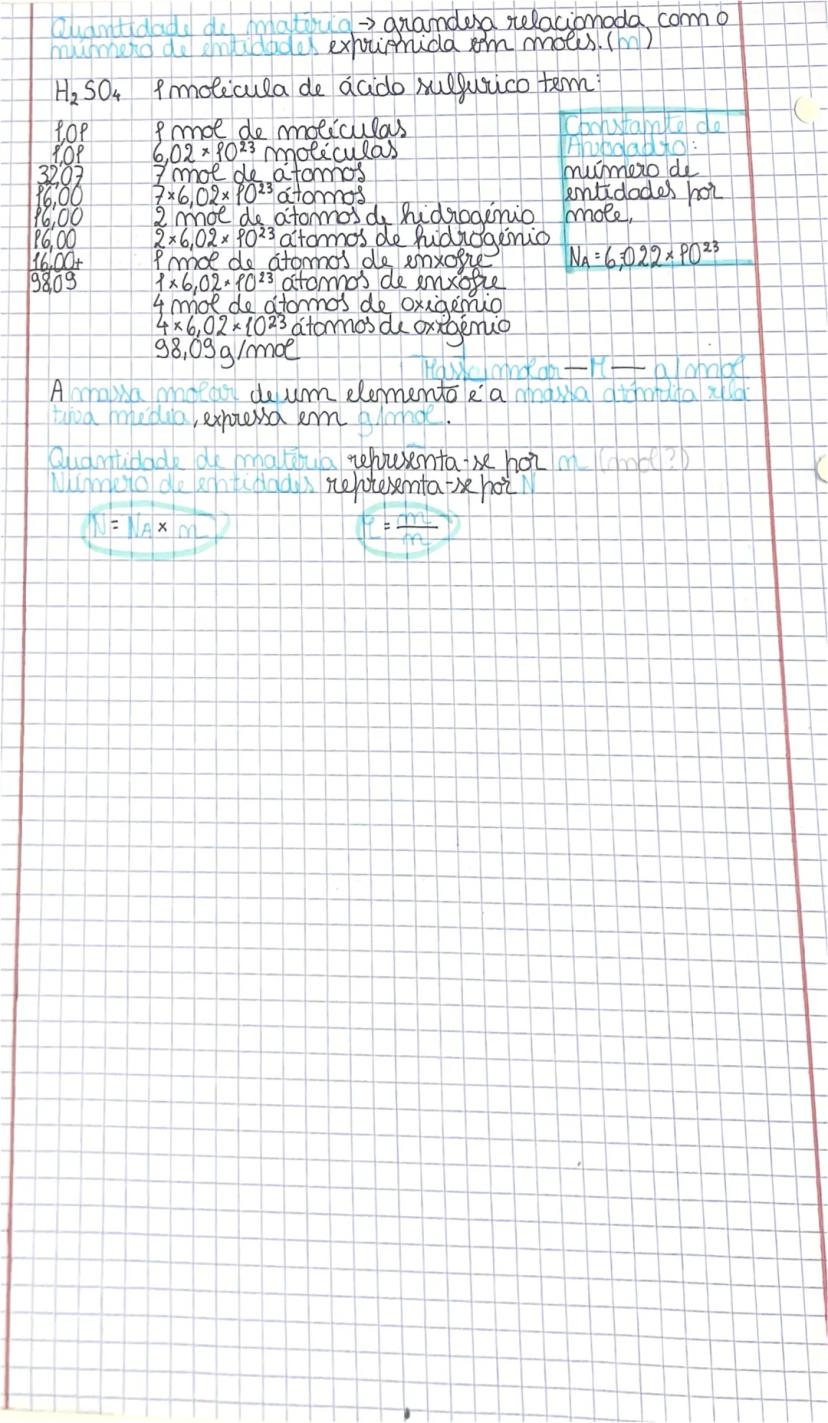 Quantidade de matéria → grandesa relacionada com o
número de entidades exprimida em moles. (n)
H2SO4 1 molécula de ácido sulfurico tem:
1,01 1 mol de moléculas
1,01 6,02 × 10²³ moléculas
32,07 7 mol de átomos
16,00 7×6,02×10²³ átomos
16,00 2 mol de átomos de hidrogénio
16,00 2×6,02×10²³ átomos de hidrogénio
16,00+ 1 mol de átomos de enxofre
98,09 1×6,02×10²³ átomos de enxofre
4 mol de átomos de oxigénio
4×6,02×10²³ átomos de oxigénio
98,09 g/mol
Constante de
Avogadro:
número de
entidades por
mole,
NA = 6,022 × 10²³
Massa molar — M — g/mol
A massa molar de um elemento é a massa atómica rela
tiva média, expressa em g/mol.
Quantidade de matéria representa-se por n (mol?)
Número de entidades representa-se por N
N = NA × n
= m/n